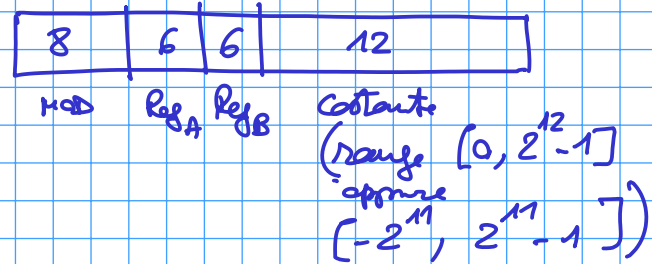 8 6 6 12
MOD Reg_A Reg_B costante
(range [0, 2^12-1]
oppure
[-2^11, 2^11-1])